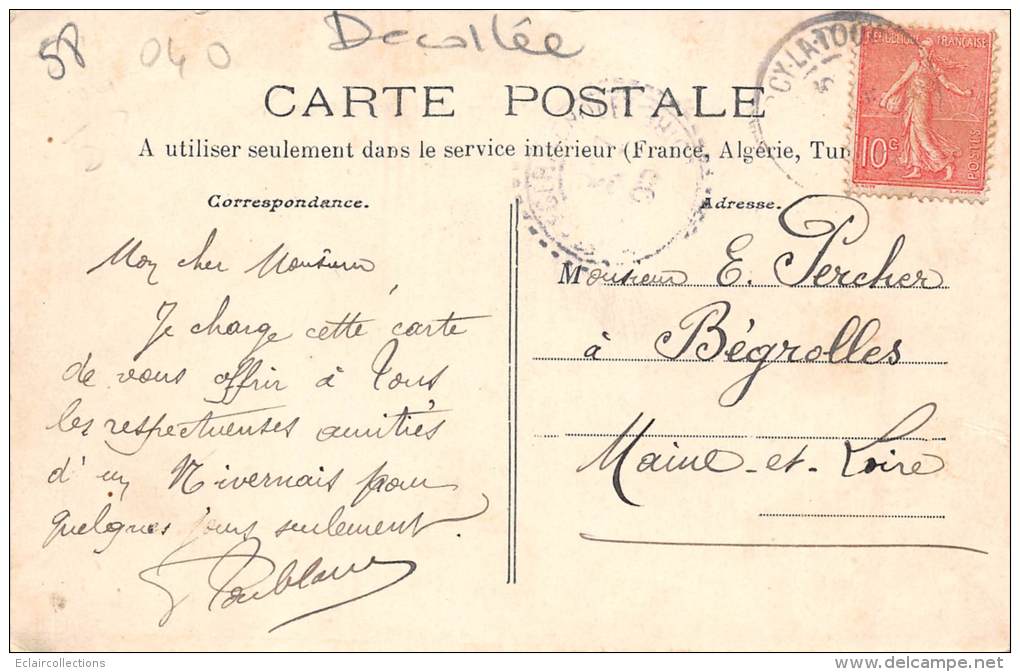 58
040
Decollée
CARTE POSTALE
A utiliser seulement dans le service intérieur (France, Algérie, Tun
RÉPUBLIQUE FRANÇAISE
10c
POSTES
CY-LA-TOU
Correspondance.
Adresse.
Mon cher Monsieur
Je charge cette carte
de vous offrir à Tous
les respectueuses amitiés
d'un Nivernais pour
quelques jours seulement.
Monsieur E. Percher
à Bégrolles
Maine-et-Loire
Eclaircollections
www.delcampe.net